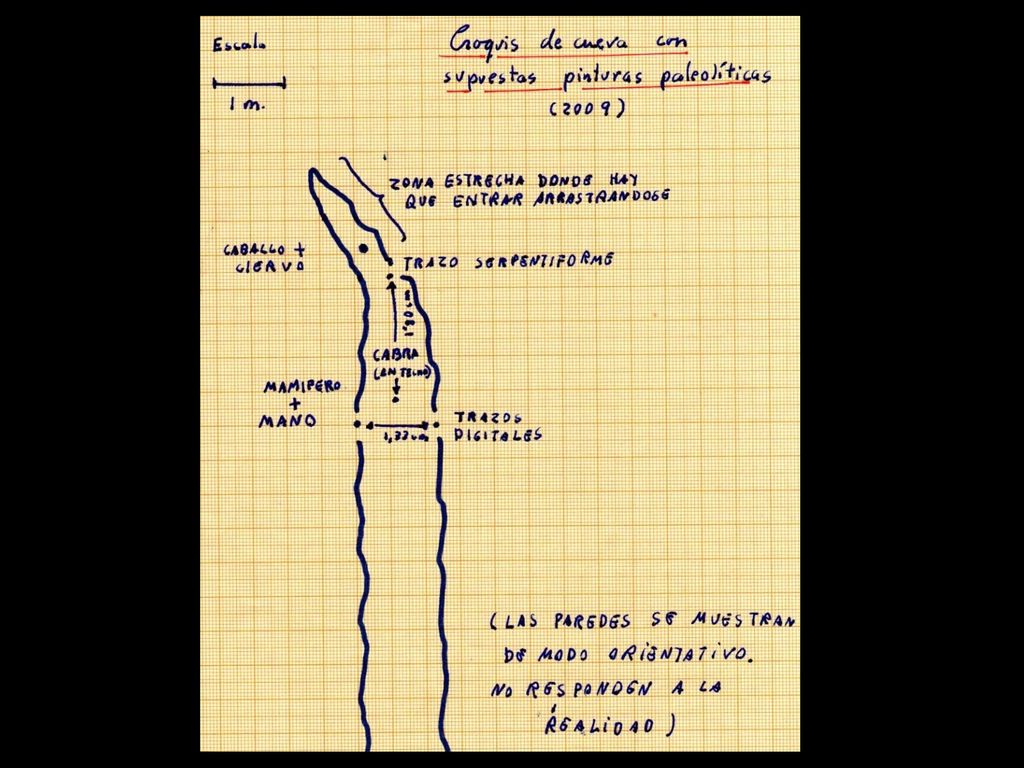 Escala
1 m.
Croquis de cueva con
supuestas pinturas paleolíticas
(2009)
ZONA ESTRECHA DONDE HAY
QUE ENTRAR ARRASTRANDOSE
CABALLO +
CIERVO
TRAZO SERPENTIFORME
CABRA
(EN TECHO)
MAMIFERO
+
MANO
TRAZOS
DIGITALES
(LAS PAREDES SE MUESTRAN
DE MODO ORIENTATIVO.
NO RESPONDEN A LA
REALIDAD)